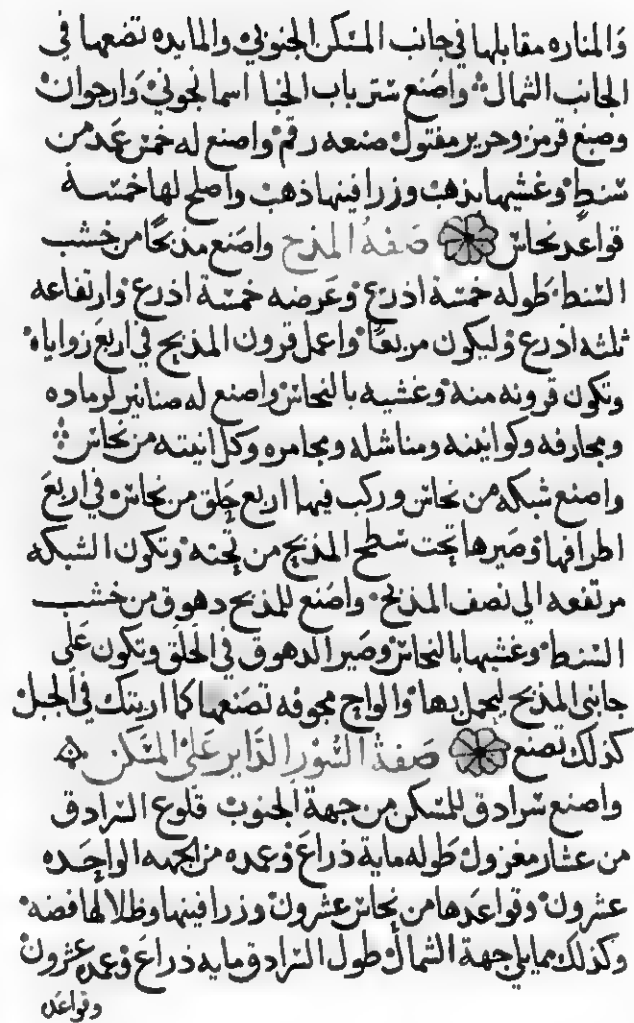 والمناره مقابلها في جانب المسكن الجنوبي والمايده تضعها في
الجانب الشمال واصنع ستر باب الخبا اسمانجوني وارجوان
وصبغ قرمز وحرير مفتول صنعه رقم واصنع له خمس عمد من
سنط وغشيها بذهب وزرافينها ذهب واصلح لها خمسة
قواعد نحاس صفة المذبح واصنع مذبحا من خشب
السنط طوله خمسة اذرع وعرضه خمسة اذرع وارتفاعه
ثلثه اذرع وليكون مربعا واعمل قرون المذبح في اربع زواياه
وتكون قرونه منه وغشيه بالنحاس واصنع له صنانير لرماده
ومجارفه وكوانينه ومناشله ومجامره وكل انيته من نحاس
واصنع شبكه من نحاس وركب فيها اربع حلق من نحاس في اربع
اطرافها وصيرها تحت سطح المذبح من تحته وتكون الشبكه
مرتفعه الي نصف المذبح واصنع للمذبح دهوق من خشب
السنط وغشيها بالنحاس وصير الدهوق في الحلق وتكون علي
جانبى المذبح ليحمل بها والواح مجوفه تصنعها كما اريتك في الجبل
كذلك تصنع صفة السور الداير على المسكن
واصنع سرادق للمسكن من جهة الجنوب قلوع السرادق
من عشار مغزول طوله مايه ذراع وعمده من الجهه الواحده
عشرون وقواعدها من نحاس عشرون وزرافينها وظلالها فضه
وكذلك مما يلي جهة الشمال طول السرادق مايه ذراع وعمده عشرون
وقواعده